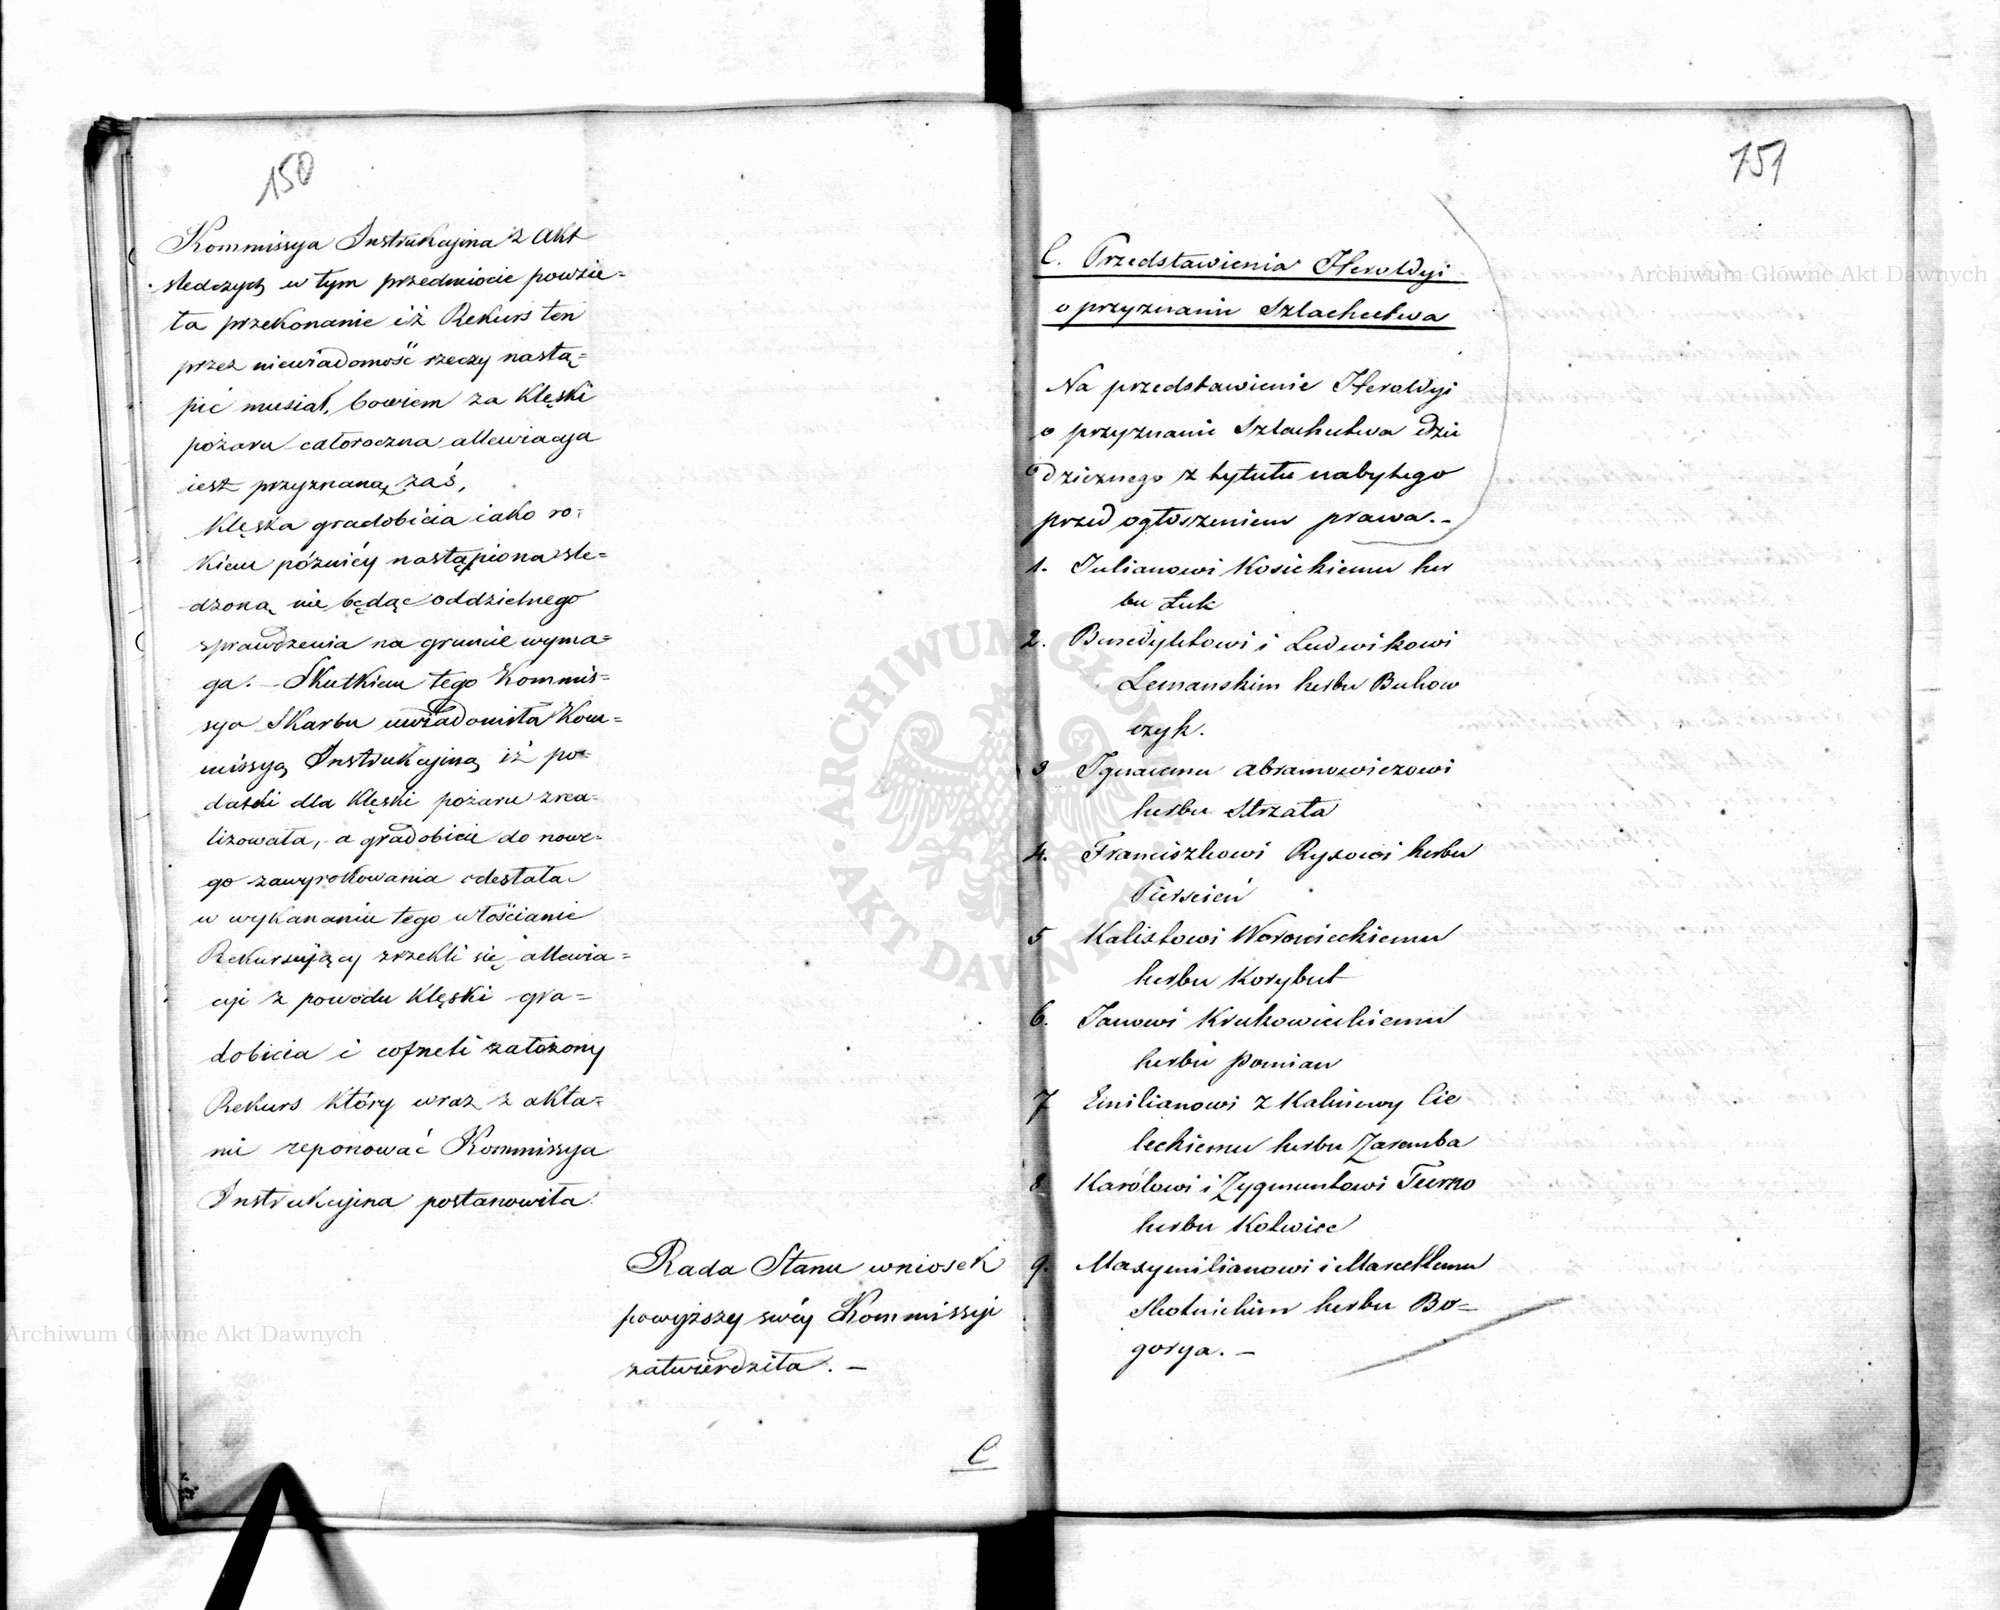 150
Kommissya Instrukcyjna z Akt
śledczych w tym przedmiocie powzię=
ła przekonanie iż Rekurs ten
przez niewiadomość rzeczy nastą=
pić musiał, bowiem za klęski
pożaru całoroczna allewiacya
iest przyznaną zaś,
Klęska gradobicia iako ro=
kiem późniéy nastąpiona śle=
dzoną nie będąc oddzielnego
sprawdzenia na gruncie wyma=
ga. – Skutkiem tego Kommis=
sya Skarbu uwiadomiła Kom=
missyą Instrukcyjną iż po=
datki dla klęski pożaru zrea=
lizowała, a gradobicie do nowe=
go zawyrokowania odesłała
w wykonaniu tego włościanie
Rekursujący zrzekli się allewia=
cyi z powodu klęski gra=
dobicia i cofneli założony
Rekurs który wraz z akta=
mi reponować Kommissya
Instrukcyjna postanowiła.
Rada Stanu wniosek
powyższy swéy Kommissyi
zatwierdziła. –
C
151
C. Przedstawienia Heroldyi
o przyznanie Szlachectwa
Na przedstawienie Heroldyi
o przyznanie Szlachectwa dzie
dzicznego z tytułu nabytego
przed ogłoszeniem prawa. –
1. Julianowi Kosickiemu her
bu Łuk
2. Benedyktowi i Ludwikowi
Lemanskim herbu Bukow
czyk.
3 Ignacemu Abramowiczowi
herbu Strzała
4. Franciszkowi Rysowi herbu
Pierscień
5 Kalixtowi Woronieckiemu
herbu Korybut
6. Janowi Krukowieckiemu
herbu Pomian
7 Emilianowi z Kalinowy Cie
leckiemu herbu Zaremba
8. Karólowi i Zygmuntowi Turno
herbu Kotwice
9. Maxymilianowi i Marcellemu
Skotnickim herbu Bo=
gorya. –
Archiwum Główne Akt Dawnych
Archiwum Główne Akt Dawnych
ARCHIWUM GŁÓWNE AKT DAWNYCH